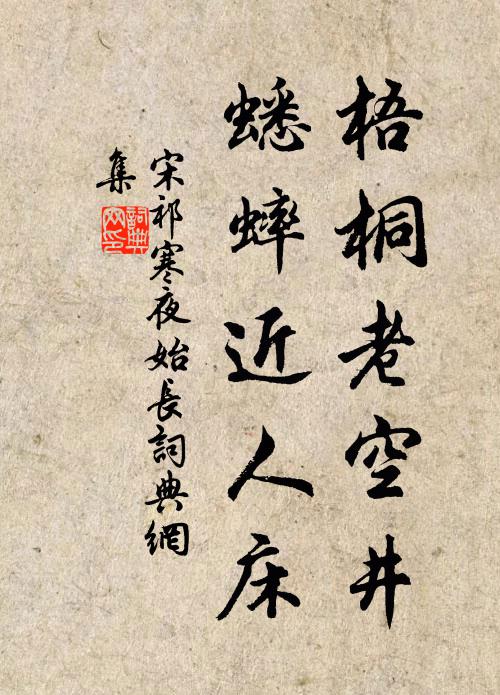 梧桐老空井
蟋蟀近人床
宋祁寒夜始長詞典網
集
詞典
网印